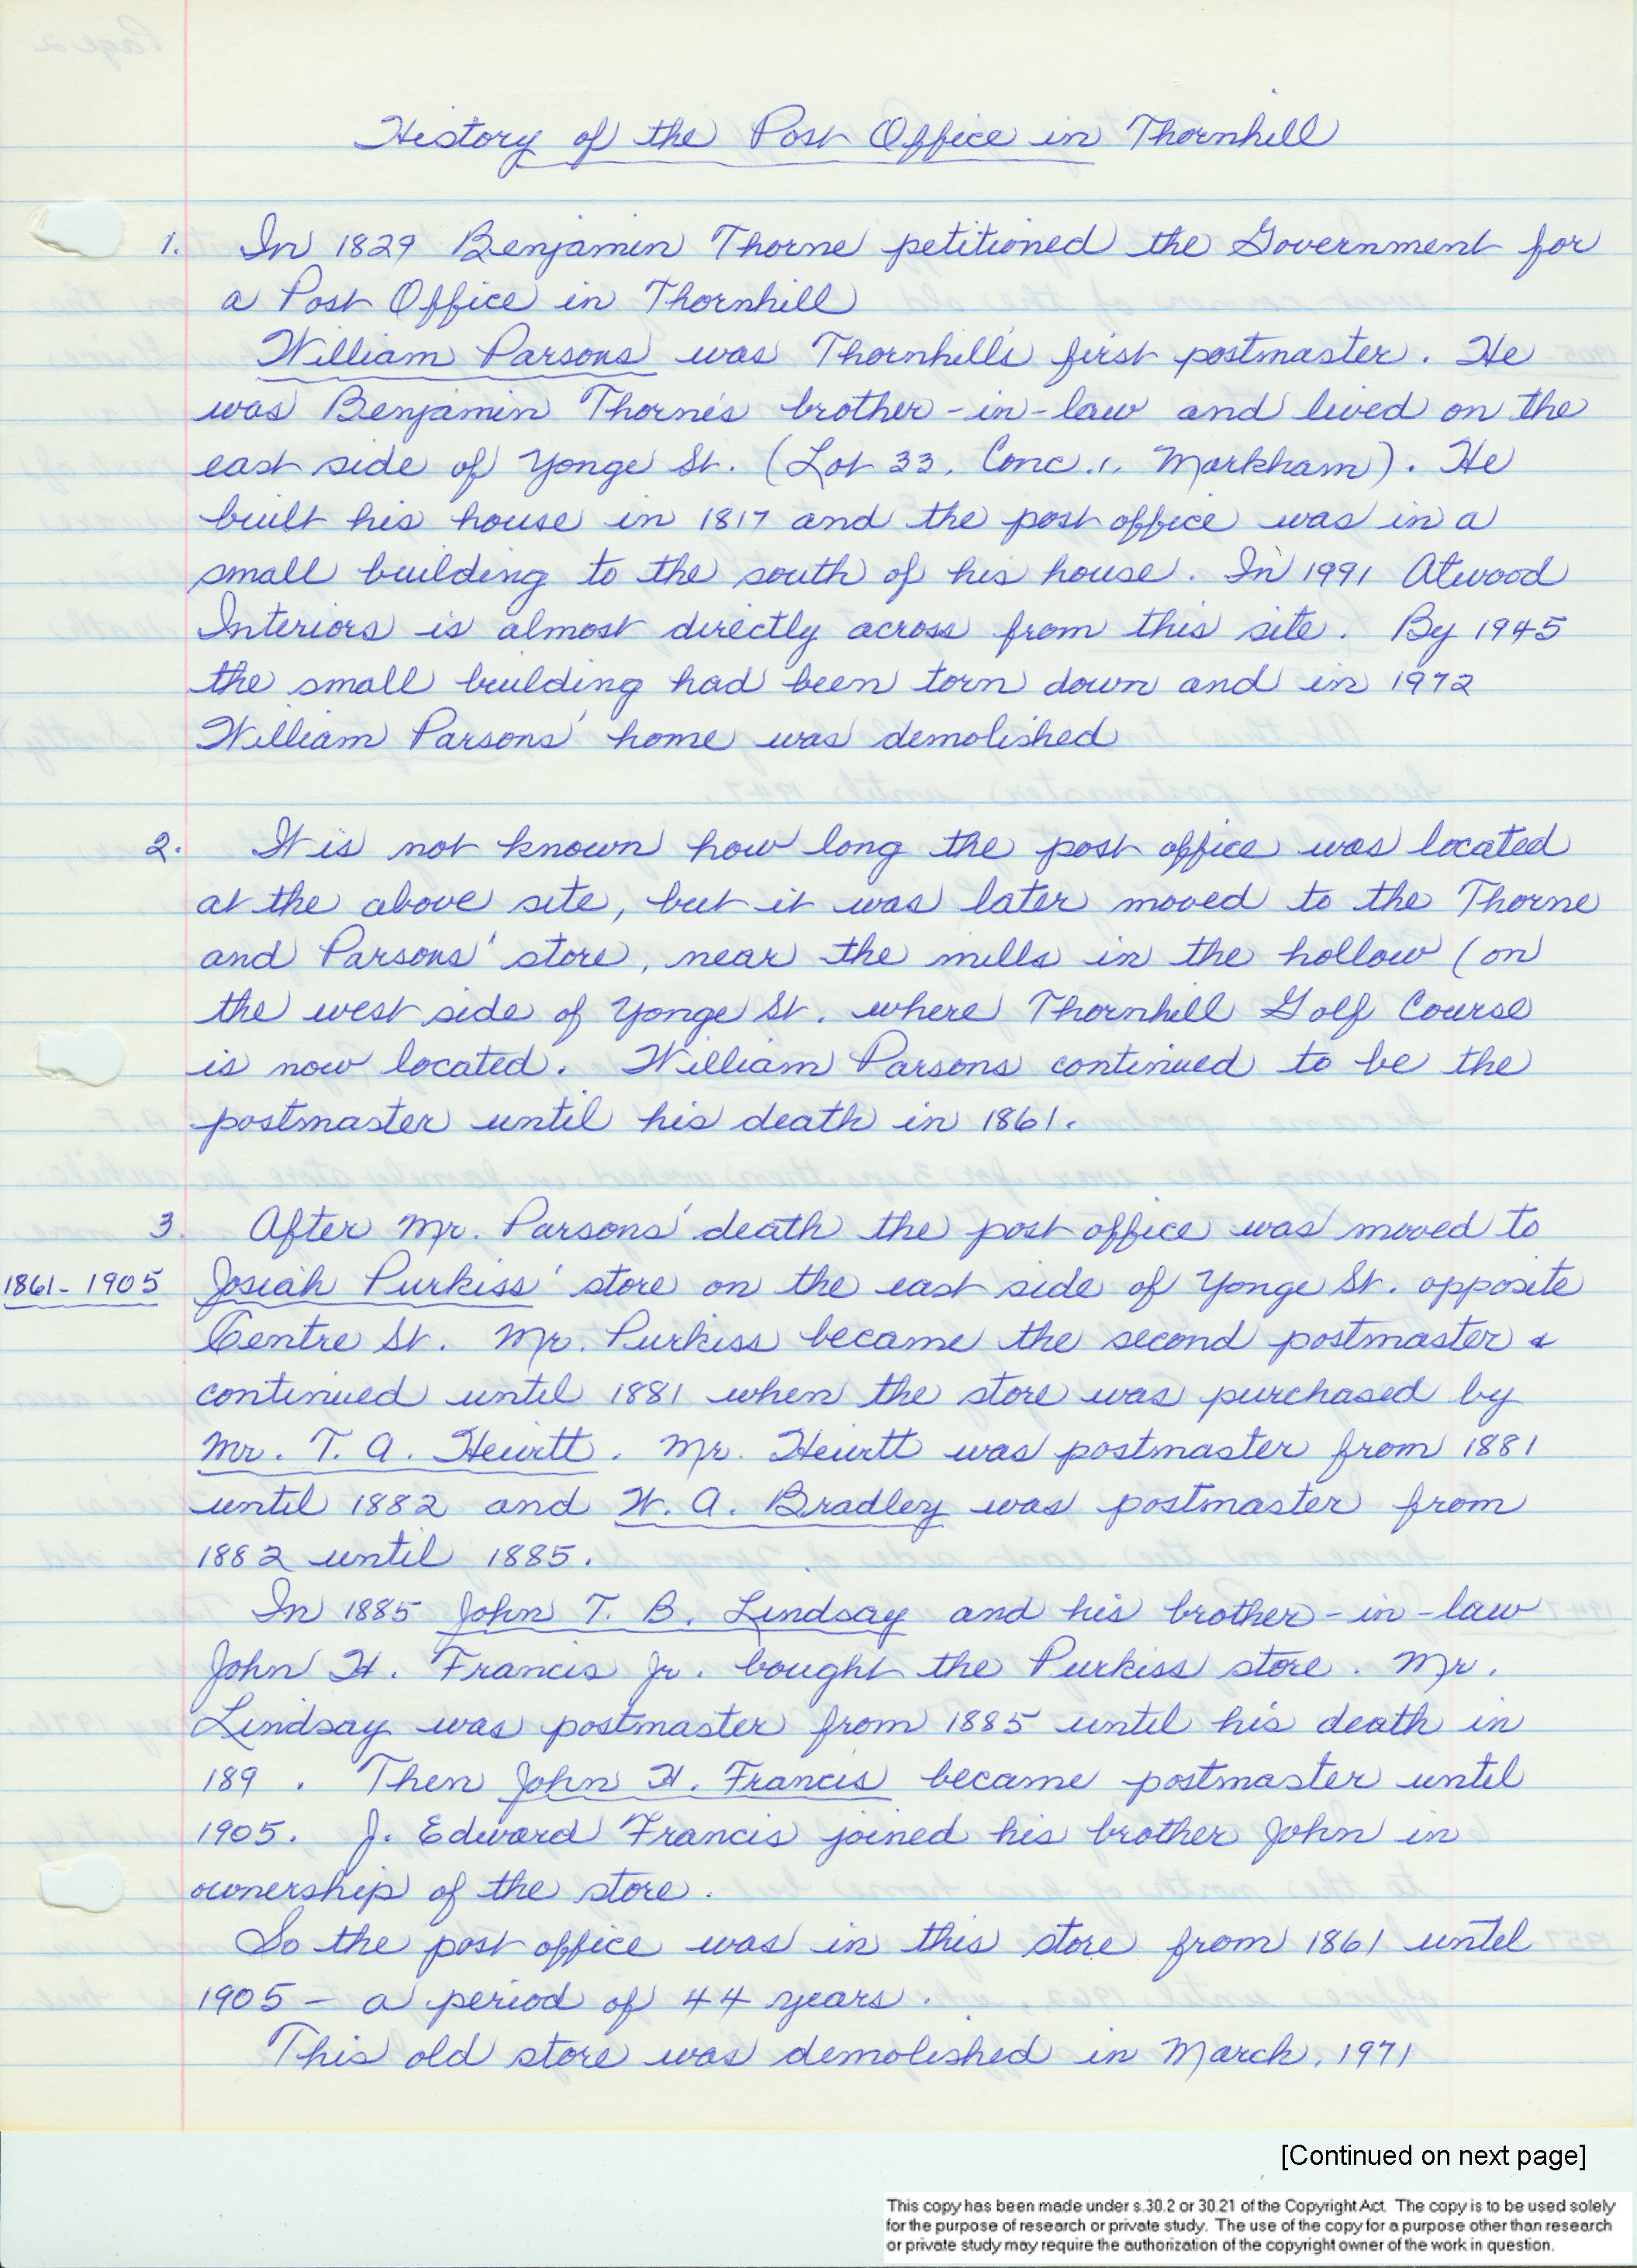 History of the Post Office in Thornhill
1. In 1829 Benjamin Thorne petitioned the Government for
a Post Office in Thornhill
William Parsons was Thornhill's first postmaster. He
was Benjamin Thorne's brother-in-law and lived on the
east side of Yonge St. (Lot 33, Conc. 1, Markham). He
built his house in 1817 and the post office was in a
small building to the south of his house. In 1991 Atwood
Interiors is almost directly across from this site. By 1945
the small building had been torn down and in 1972
William Parsons' home was demolished
2. It is not known how long the post office was located
at the above site, but it was later moved to the Thorne
and Parsons' store, near the mills in the hollow (on
the west side of Yonge St. where Thornhill Golf Course
is now located. William Parsons continued to be the
postmaster until his death in 1861.
3. After Mr. Parsons' death the post office was moved to
1861-1905 Josiah Purkiss' store on the east side of Yonge St. opposite
Centre St. Mr. Purkiss became the second postmaster &
continued until 1881 when the store was purchased by
Mr. T. A. Hewitt. Mr. Hewitt was postmaster from 1881
until 1882 and W. A. Bradley was postmaster from
1882 until 1885.
In 1885 John T. B. Lindsay and his brother-in-law
John H. Francis Jr. bought the Purkiss store. Mr.
Lindsay was postmaster from 1885 until his death in
189 . Then John H. Francis became postmaster until
1905. J. Edward Francis joined his brother John in
ownership of the store.
So the post office was in this store from 1861 until
1905 - a period of 44 years.
This old store was demolished in March, 1971
[Continued on next page]
This copy has been made under s.30.2 or 30.21 of the Copyright Act. The copy is to be used solely
for the purpose of research or private study. The use of the copy for a purpose other than research
or private study may require the authorization of the copyright owner of the work in question.